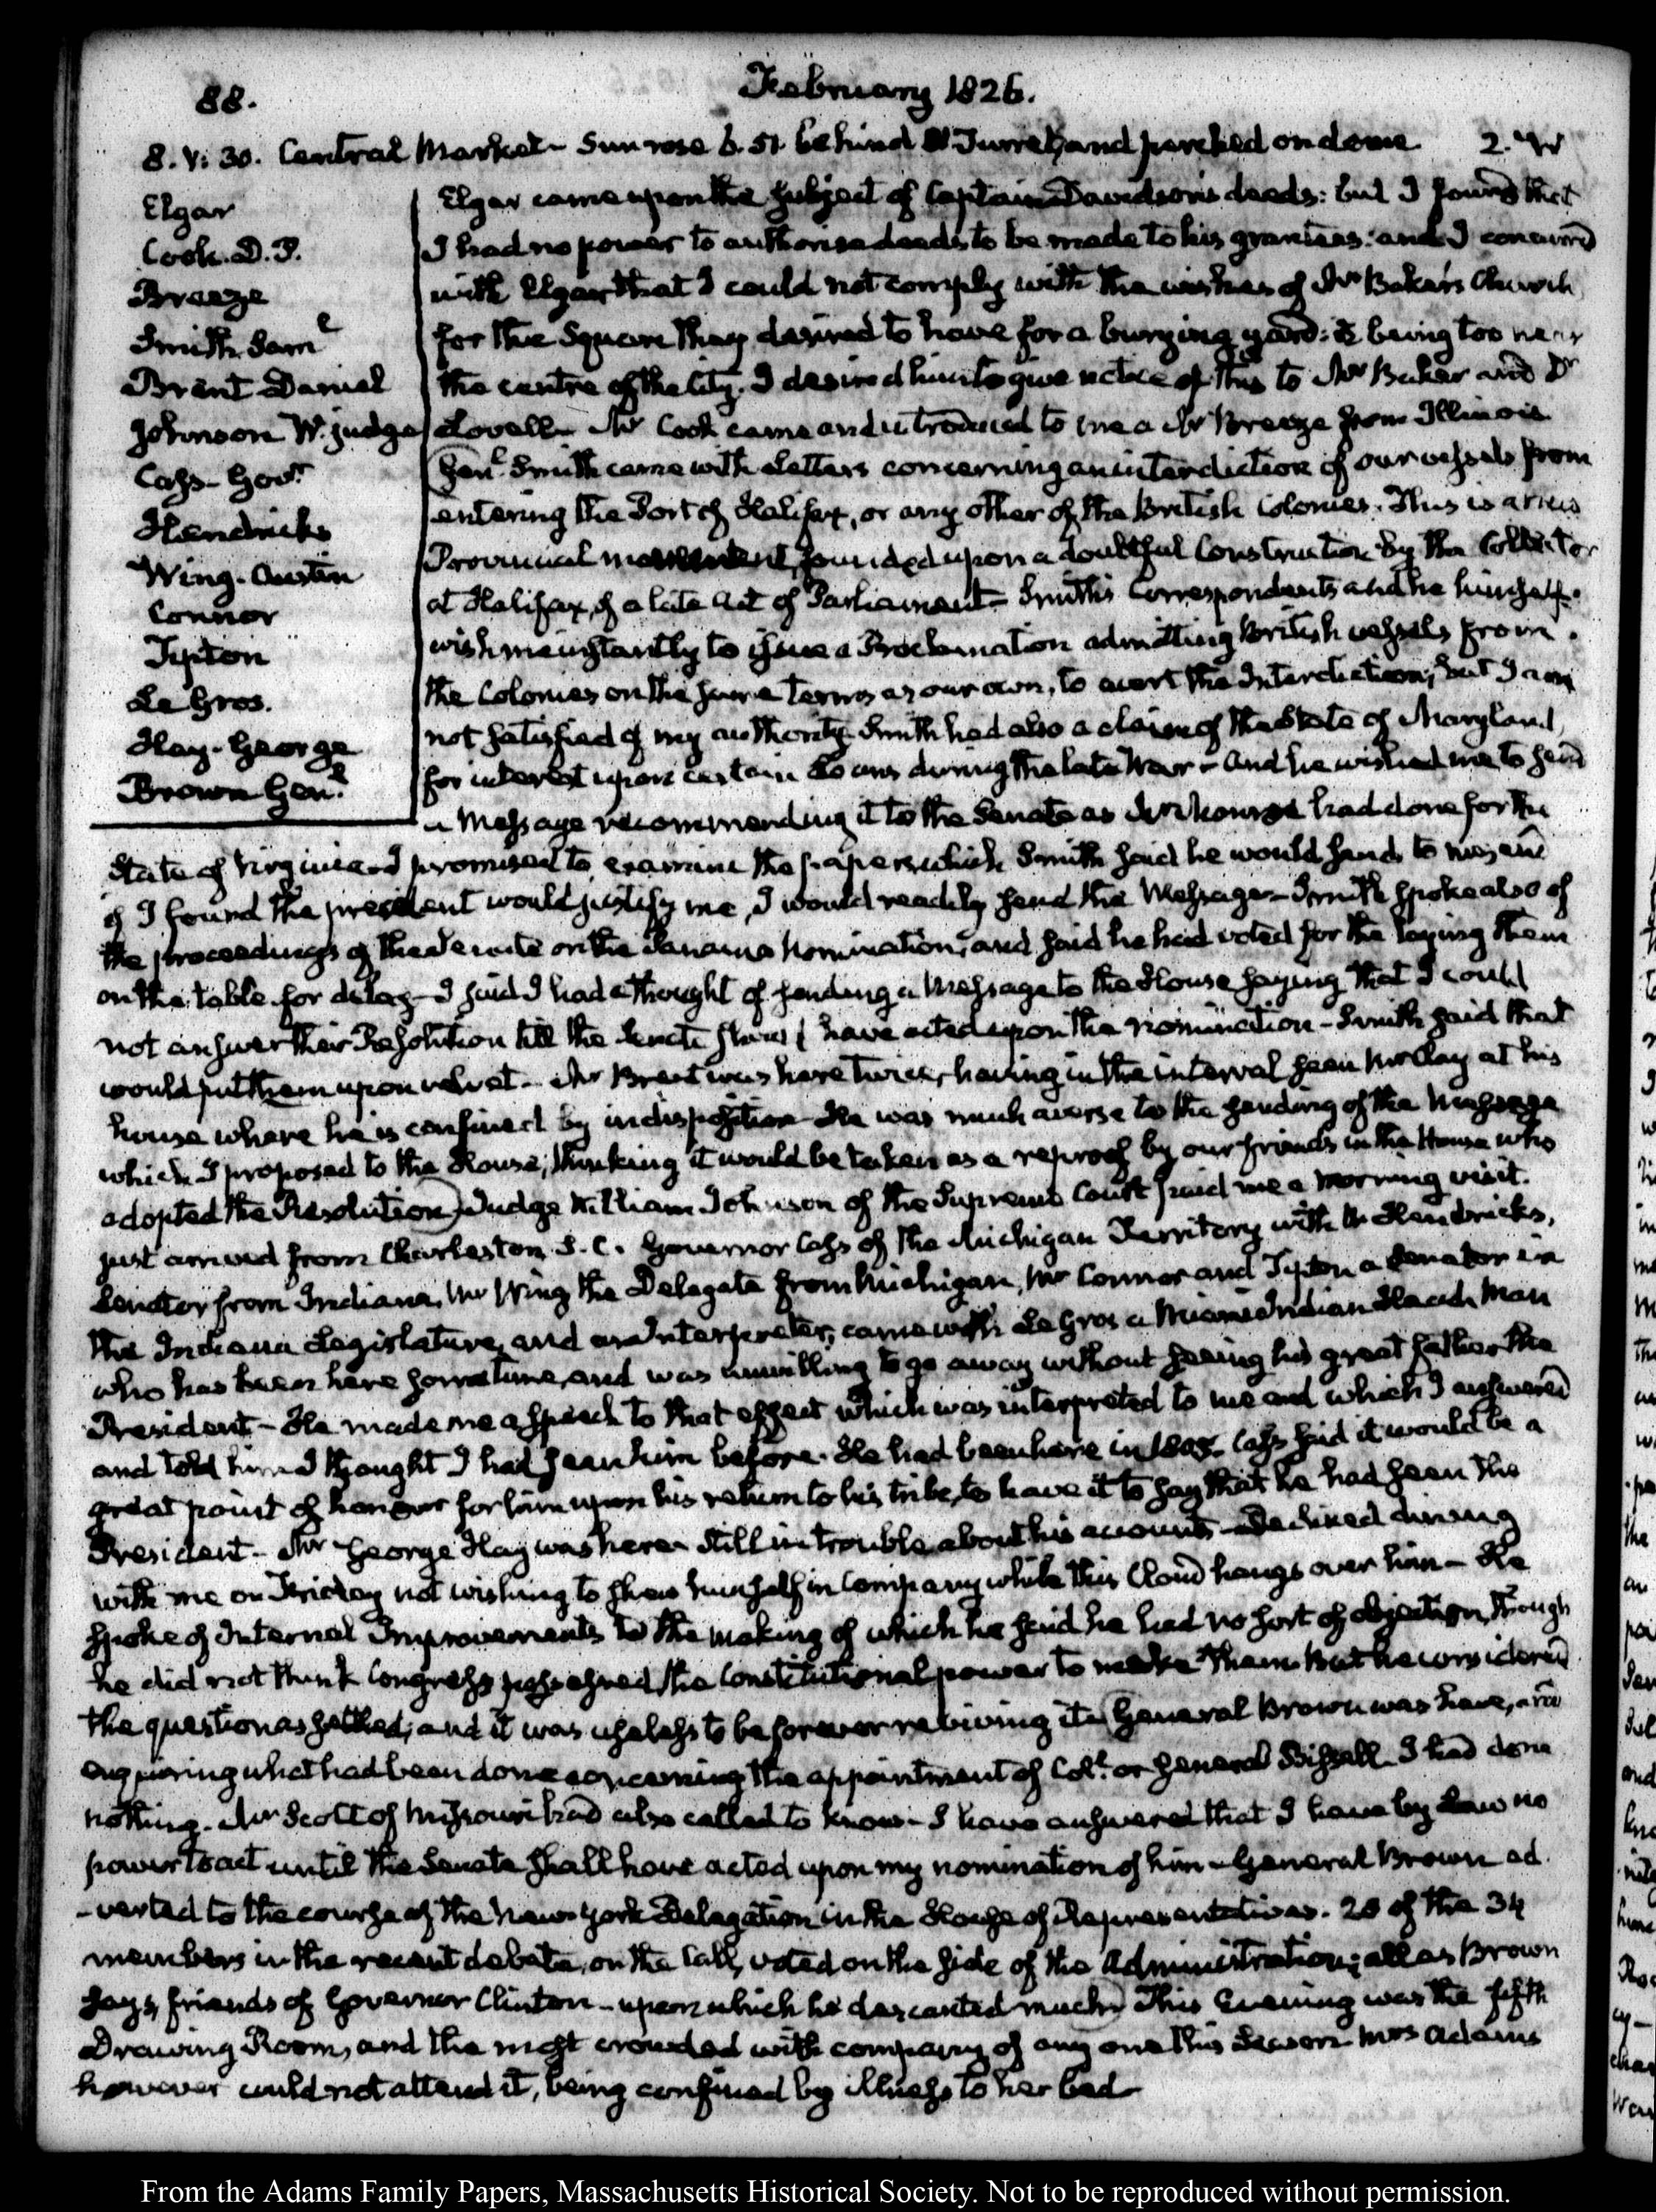 88.
February 1826.
8. V: 30. Central Market - Sun rose 6.51. behind Turret, and perched on dome
Elgar
Cook. D. P.
Breeze
Smith Saml
Brent Daniel
Johnson W. judge
Cass- Govr
Hendricks
Wing. Austin
Connor
Tipton
Le Gros.
Hay- George
Brown Genl.
Elgar came upon the subject of Captain Davidson's deeds: but I found that
I had no power to authorise deeds to be made to his grantees: and I concurred
with Elgar that I could not comply with the wishes of Mr Baker's Church
for the Square they desired to have for a burying yard: it being too near
the centre of the City. I desired him to give notice of this to Mr Baker and Dr
Lovell- Mr Cook came and introduced to me a Mr Breeze from Illinois
Genl. Smith came with Letters concerning an interdiction of our vessels from
entering the Port of Halifax, or any other of the British Colonies. This is a new
Provincial movement, founded upon a doubtful Construction by the Collector
at Halifax, of a late Act of Parliament- Smith's Correspondents and he himself
wish me instantly to issue a Proclamation admitting British vessels from
the Colonies on the same terms as our own, to avert the Interdiction; but I am
not satisfied of my authority- Smith had also a claim of the State of Maryland
for interest upon certain Loans during the late War- and he wished me to send
a Message recommending it to the Senate as Mr Monroe had done for the
State of Virginia- I promised to examine the papers which Smith said he would send to me, and
if I found the precedent would justify me, I would readily send the Message- Smith spoke also of
the proceedings of the Senate on the Panama Nomination, and said he had voted for the laying them
on the table for delay- I said I had a thought of sending a Message to the House saying that I could
not answer their Resolution till the Senate should have acted upon the nomination- Smith said that
would put them upon velvet- Mr Brent was here twice, having in the interval seen Mr Clay at his
house where he is confined by indisposition- He was much averse to the sending of the Message
which I proposed to the House, thinking it would be taken as a reproof by our friends in the House who
adopted the Resolution) Judge William Johnson of the Supreme Court paid me a morning visit.
just arrived from Charleston S. C. Governor Cass of the Michigan Territory with Mr Hendricks,
Senator from Indiana, Mr Wing the Delegate from Michigan, Mr Connor and Tipton a Senator in
the Indiana Legislature, and an Interpreter, came with Le Gros a Miami Indian Head Man
who has been here some time, and was unwilling to go away without seeing his great father the
President- He made me a Speech to that effect which was interpreted to me and which I answered
and told him I thought I had seen him before. He had been here in 1805. Cass said it would be a
great point of honour for him upon his return to his tribe, to have it to say that he had seen the
President- Mr George Hay was here- Still in trouble about his accounts- Declined dining
with me on Friday not wishing to shew himself in Company while this Cloud hangs over him- He
spoke of Internal Improvements to the making of which he said he had no sort of objection, though
he did not think Congress possessed the Constitutional power to make them. But he considered
the question as settled; and it was useless to be forever reviving it. (General Brown was here, and
enquiring what had been done concerning the appointment of Coll. or General Bissell- I had done
nothing- Mr Scott of Missouri had also called to know- I have answered that I have by Law no
power to act until the Senate shall have acted upon my nomination of him- General Brown ad
-verted to the course of the New-York Delegation in the House of Representatives. 28 of the 34
members in the recent debate, on the Call, voted on the side of the Administration; all as Brown
says, friends of Governor Clinton- upon which he descanted much) This Evening was the fifth
Drawing Room, and the most crowded with company of any one this Season Mrs Adams
however could not attend it, being confined by illness to her bed-
From the Adams Family Papers, Massachusetts Historical Society. Not to be reproduced without permission.